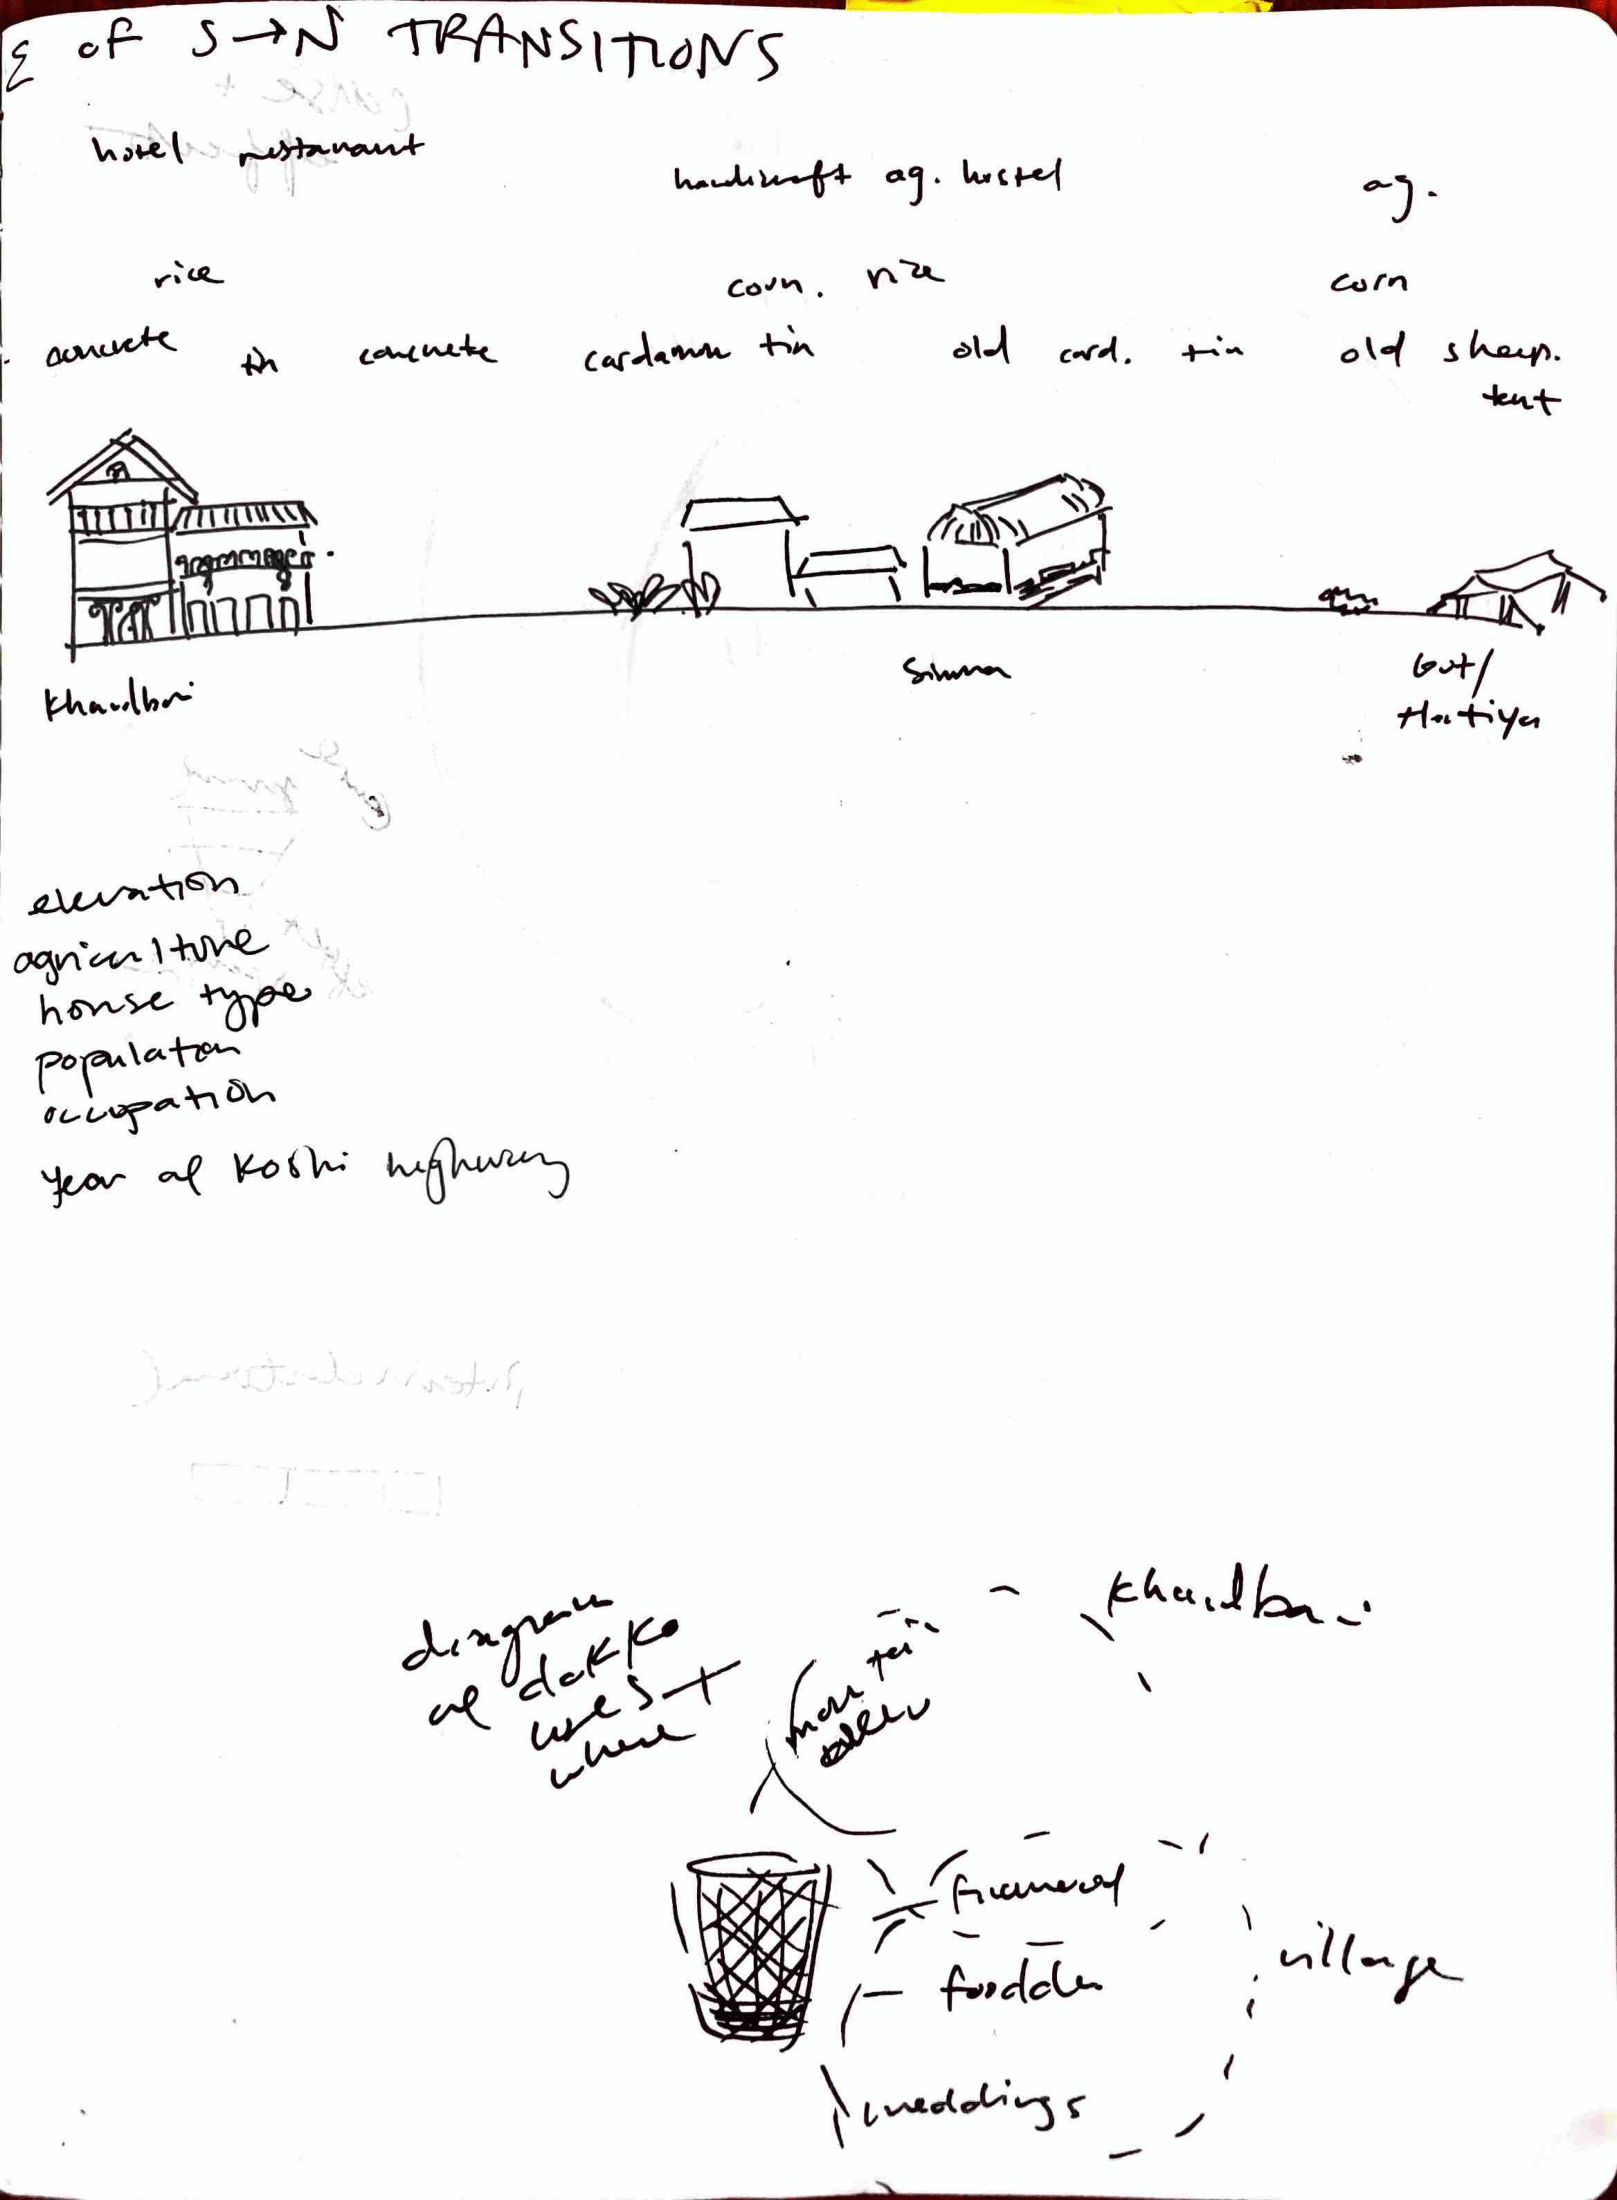 Σ of S→N TRANSITIONS
hotel restaurant
handicraft ag. hostel
ag.
rice
corn. rice
corn
concrete tin concrete cardamom tin old card. tin old sheep.
tent
Khandbari
Simma
Gut/
Hatiya
elevation
agriculture
house type
population
occupation
year of Koshi highway
diagram
of dokko
uses +
where
Khandbari
funeral
fodder
village
weddings